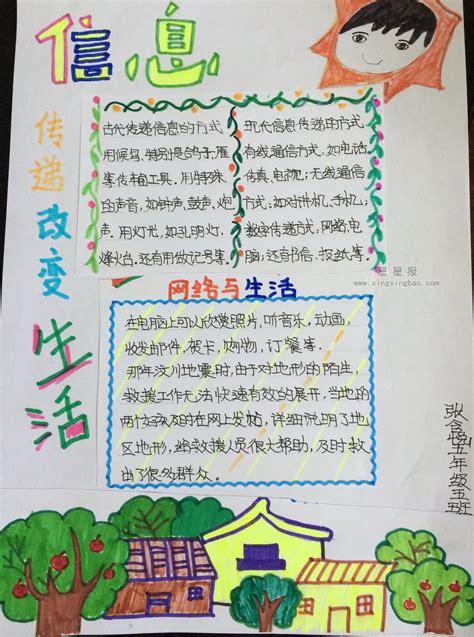 信息
传递改变
生活
古代传递信息的方式
用候鸟,特别是鸽子,雁
等传书面工具。用特殊
的声音,如钟声、鼓声、炮
声。用灯光,如孔明灯,
烽火台,还有用做记号等。
现代信息传递的方式
有线通信方式,如电话
传真、电视;无线通信
方式,如对讲机,手机,
数字传递方式,网络,电
脑;还有书信、报纸等。
星星报
www.xingxingbao.com
网络与生活
在电脑上可以欣赏照片,听音乐,动画,
收发邮件,贺卡,购物,订餐等.
那年汶川地震时,由于对地形的陌生
救援工作无法快速有效的展开,当地的
两女孩及时在网上发帖,详细说明了地
区地形,给救援人员很大帮助,及时救
出了很多群众。
五年级五班